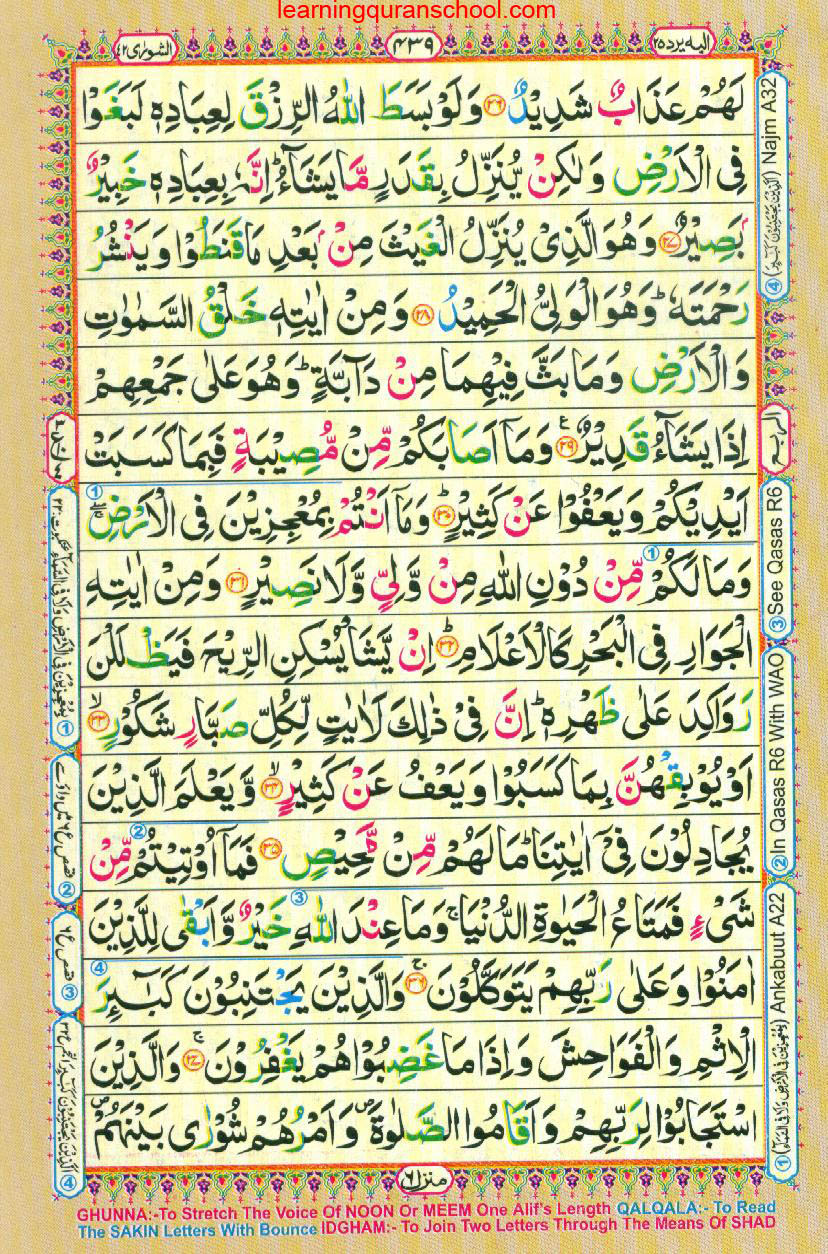 learningquranschool.com
الشورٰى ٤٢
٤٣٩
اليه يرد ٢٥
لَهُمْ عَذَابٌ شَدِيْدٌ ﴿۲۶﴾ وَلَوْ بَسَطَ اللّٰهُ الرِّزْقَ لِعِبَادِهٖ لَبَغَوْا
فِى الْاَرْضِ وَلٰكِنْ يُّنَزِّلُ بِقَدَرٍ مَّا يَشَآءُ ؕ اِنَّهٗ بِعِبَادِهٖ خَبِيْرٌۢ
بَصِيْرٌ ﴿۲۷﴾ وَهُوَ الَّذِىْ يُنَزِّلُ الْغَيْثَ مِنْۢ بَعْدِ مَا قَنَطُوْا وَيَنْشُرُ
رَحْمَتَهٗ ؕ وَهُوَ الْوَلِىُّ الْحَمِيْدُ ﴿۲۸﴾ وَمِنْ اٰيٰتِهٖ خَلْقُ السَّمٰوٰتِ
وَالْاَرْضِ وَمَا بَثَّ فِيْهِمَا مِنْ دَآبَّةٍ ؕ وَهُوَ عَلٰى جَمْعِهِمْ
اِذَا يَشَآءُ قَدِيْرٌ ﴿۲۹﴾ وَمَاۤ اَصَابَكُمْ مِّنْ مُّصِيْبَةٍ فَبِمَا كَسَبَتْ
اَيْدِيْكُمْ وَيَعْفُوْا عَنْ كَثِيْرٍ ؕ ﴿۳۰﴾ وَمَاۤ اَنْتُمْ بِمُعْجِزِيْنَ فِى الْاَرْضِ ۖۚ ①
وَمَا لَكُمْ مِّنْ دُوْنِ اللّٰهِ مِنْ وَّلِىٍّ وَّلَا نَصِيْرٍ ﴿۳۱﴾ وَمِنْ اٰيٰتِهِ
الْجَوَارِ فِى الْبَحْرِ كَالْاَعْلَامِ ؕ ﴿۳۲﴾ اِنْ يَّشَاْ يُسْكِنِ الرِّيْحَ فَيَظْلَلْنَ
رَوَاكِدَ عَلٰى ظَهْرِهٖ ؕ اِنَّ فِىْ ذٰلِكَ لَاٰيٰتٍ لِّكُلِّ صَبَّارٍ شَكُوْرٍ ۙ ﴿۳۳﴾
اَوْ يُوْبِقْهُنَّ بِمَا كَسَبُوْا وَيَعْفُ عَنْ كَثِيْرٍ ۙ ﴿۳۴﴾ وَّيَعْلَمَ الَّذِيْنَ
يُجَادِلُوْنَ فِىْۤ اٰيٰتِنَا ؕ مَا لَهُمْ مِّنْ مَّحِيْصٍ ﴿۳۵﴾ فَمَاۤ اُوْتِيْتُمْ مِّنْ ②
شَىْءٍ فَمَتَاعُ الْحَيٰوةِ الدُّنْيَا ۚ وَمَا عِنْدَ اللّٰهِ خَيْرٌ وَّاَبْقٰى لِلَّذِيْنَ ③
اٰمَنُوْا وَعَلٰى رَبِّهِمْ يَتَوَكَّلُوْنَ ۚ ﴿۳۶﴾ وَالَّذِيْنَ يَجْتَنِبُوْنَ كَبٰٓئِرَ ④
الْاِثْمِ وَالْفَوَاحِشَ وَاِذَا مَا غَضِبُوْا هُمْ يَغْفِرُوْنَ ۚ ﴿۳۷﴾ وَالَّذِيْنَ
اسْتَجَابُوْا لِرَبِّهِمْ وَاَقَامُوا الصَّلٰوةَ ۪ وَاَمْرُهُمْ شُوْرٰى بَيْنَهُمْ ۪
④ (الَّذِيْنَ يَجْتَنِبُوْنَ كَبٰٓئِرَ) Najm A32
الربع
③ See Qasas R6
② In Qasas R6 With WAO
① (بِمُعْجِزِيْنَ فِى الْاَرْضِ وَلَا فِى السَّمَآءِ) Ankabuut A22
منزل ٦
GHUNNA:-To Stretch The Voice Of NOON Or MEEM One Alif's Length QALQALA:- To Read
The SAKIN Letters With Bounce IDGHAM:- To Join Two Letters Through The Means Of SHAD